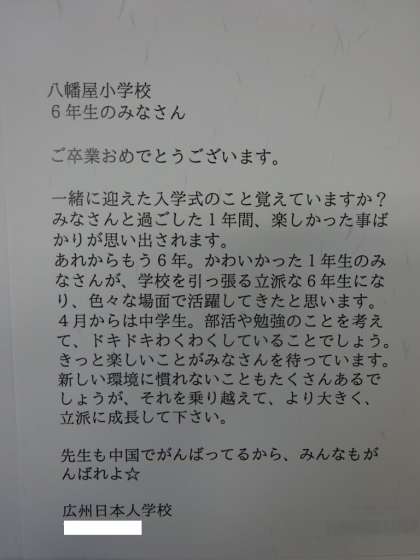 八幡屋小学校
6年生のみなさん
ご卒業おめでとうございます。
一緒に迎えた入学式のこと覚えていますか？
みなさんと過ごした1年間、楽しかった事ば
かりが思い出されます。
あれからもう6年。かわいかった1年生のみ
なさんが、学校を引っ張る立派な6年生にな
り、色々な場面で活躍してきたと思います。
4月からは中学生。部活や勉強のことを考え
て、ドキドキわくわくしていることでしょう。
きっと楽しいことがみなさんを待っています。
新しい環境に慣れないこともたくさんあるで
しょうが、それを乗り越えて、より大きく、
立派に成長して下さい。
先生も中国でがんばってるから、みんなもが
んばれよ☆
広州日本人学校